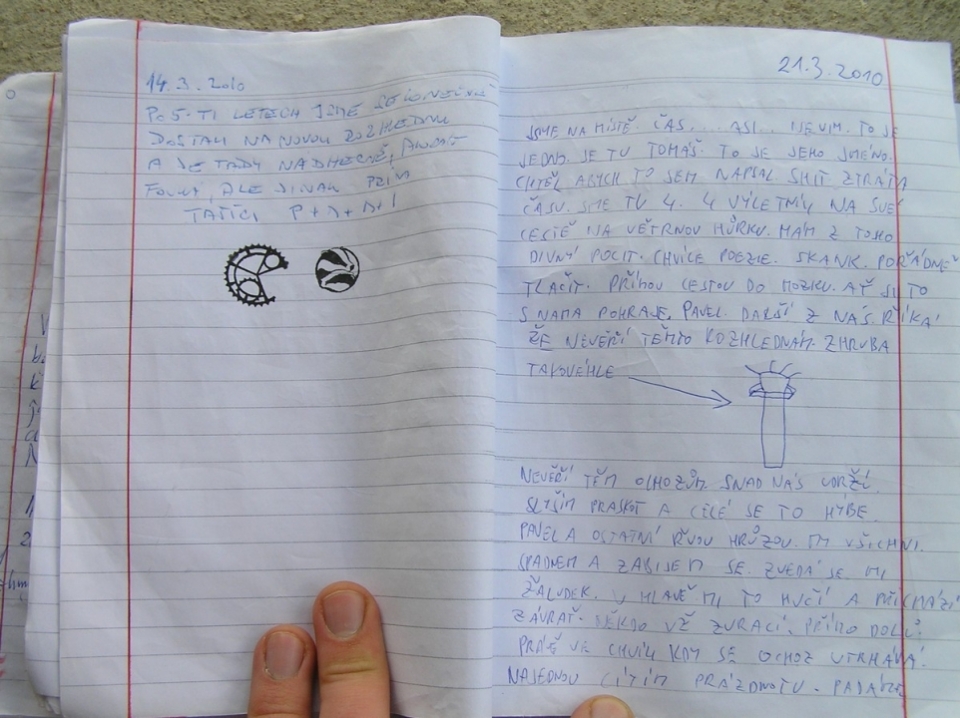 14.3.2010
PO 5-TI LETECH JSME SE KONEČNĚ
DOSTALI NA NOVOU ROZHLEDNU
A JE TADY NÁDHERNĚ,
FOUKÁ, ALE JINAK PRIMA
TATÍCI P+A+A+I
21.3.2010
JSME NA MÍSTĚ. ČAS... ASI... NEVIM. TO JE
JEDNO. JE TU TOMÁŠ. TO JE JEHO JMÉNO.
CHTĚL ABYCH TO SEM NAPSAL SHIT ZTRÁTA
ČASU. JSME TU 4. 4 VÝLETNÍCI NA SVÉ
CESTĚ NA VĚTRNOU HŮRKU. MÁM Z TOHO
DIVNÝ POCIT. CHVÍLE POEZIE. SKANK. POŘÁDNĚ
TLAČIT. PŘÍMOU CESTOU DO MOZKU. AŤ SI TO
S NÁMA POHRAJE, PAVEL. DALŠÍ Z NÁS. ŘÍKÁ
ŽE NEVĚŘÍ TĚMTO ROZHLEDNÁM. ZHRUBA
TAKOVÉHLE
NEVĚŘÍ TĚM OCHOZŮM. SNAD NÁS UDRŽÍ.
SLYŠÍM PRASKOT A CELÉ SE TO HÝBE.
PAVEL A OSTATNÍ ŘVOU HRŮZOU. MY VŠICHNI.
SPADNEM A ZABIJEM SE. ZVEDÁ SE MI
ŽALUDEK. V HLAVĚ MI TO HUČÍ A PŘICHÁZÍ
ZÁVRAŤ. NĚKDO UŽ ZVRACÍ. PŘÍMO DOLŮ.
PRÁVĚ VE CHVÍLI KDY SE OCHOZ UTRHÁVÁ.
NAJEDNOU CÍTÍM PRÁZDNOTU. PADÁME